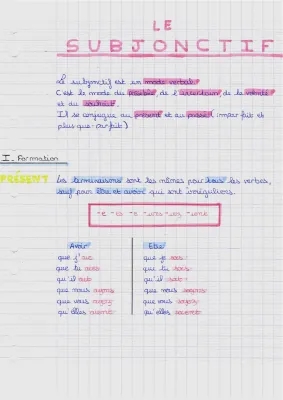 LE
SUBJONCTIF
Le subjonctif est un mode verbal.
C'est le mode du possible, de l'incertain, de la volonté
et du souhait.
Il se conjugue au présent et au passé (imparfait et
plus-que-parfait)
I - Formation
PRÉSENT
Les terminaisons sont les mêmes pour tous les verbes,
sauf pour être et avoir qui sont irréguliers.
-e -es -e -ions -iez -ent
Avoir
que j'aie
que tu aies
qu'il ait
que nous ayons
que vous ayez
qu'elles aient
Etre
que je sois
que tu sois
qu'il soit
que nous soyons
que vous soyez
qu'elles soient